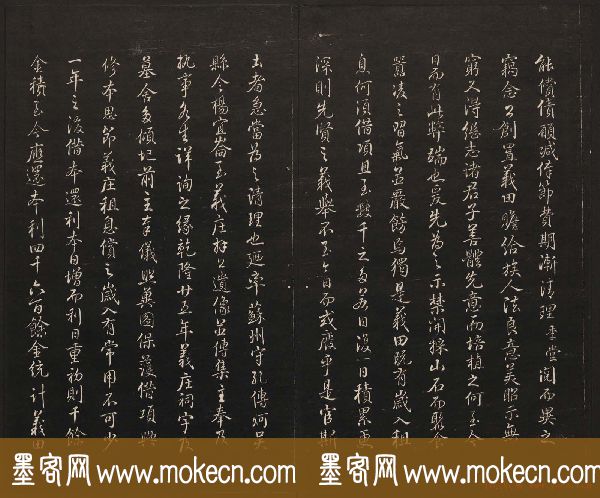 能償債願減俸節費期漸清理季堂閱而
窮念公創置義田贍給族人法良意美昭示無
窮又得繼志諸君子善體先意而培植之何至今
日而有此弊端也爰先為之示禁開採山石而聚會
囂凌之習氣並嚴飭焉獨是義田既有歲入租
息何須借項且至數千之多若日復一日積累更
深則先賢之義舉不至今日而或廢乎是官斯
土者急當為之清理也
縣令楊宜崙至義庄拜公遺像並傳集主奉及
執事各生詳詢之緣乾隆廿五年義庄祠宇及
墓舍多傾圮前主奉儀照興圖保護借項興
修本思節義庄租息償之歲入有常用不可少
一年之後借本還利本日增而利日重初則千餘
金積至今應還本利四千六百餘金統計義田
墨客网 www.mokecn.com
墨客网 www.mokecn.com